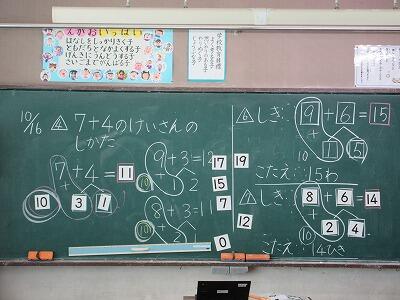 えがおいっぱい
はなしをしっかりきく子
ともだちとなかよくする子
げんきにうんどうする子
さいごまでがんばる子
学校教育目標
10/16 7+4のけいさんの
しかた
7+4=11
+
10 3 1
9+3=12
+
10 1 2
8+3=11
+
10 2 1
17 19
15
7
12
0
6 しき: 9+6=15
+
10 1 5
こたえ: 15わ
しき: 8+6=14
+
10 2 4
こたえ: 14ひき